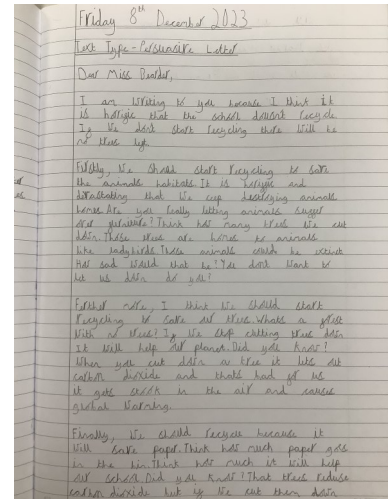 Friday 8th December 2023
Text Type - Persuasive Letter
Dear Miss
I am writing to you because I think it
is the school dousnt recycle
If we dont start recycling there will be
no trees left.
Firstly, we should start recycling to save
the animals habitats. It is and
that we keep destroying animals
homes. Are you really letting animals suffer
over ? Think how many trees we cut
down. Those trees are homes to animals
like ladybirds. Those animals could be extinct
How sad would that be! You dont want to
let us down do you?
Further more, I think we should start
recycling to save our trees. Whats a forest
with no trees? If we stop cutting trees down
it will help our planet. Did you know?
When you cut down a tree it lets out
carbon dioxide and thats bad for us
it gets stook in the air and causes
global warming.
Finally, we should recycle because it
will save paper. Think how much paper goes
in the bin. Think how much it will help
our school. Did you know? That trees reduse
carbon dioxide but if we cut them down